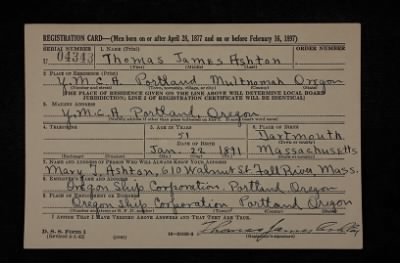 REGISTRATION CARD—(Men born on or after April 28, 1877 and on or before February 16, 1897)
SERIAL NUMBER 1. NAME (Print) ORDER NUMBER
U 04343 Thomas James Ashton
(First) (Middle) (Last)
2. PLACE OF RESIDENCE (Print)
Y.M.C.A. Portland Multnomah Oregon
(Number and street) (Town, township, village, or city) (County) (State)
[THE PLACE OF RESIDENCE GIVEN ON THE LINE ABOVE WILL DETERMINE LOCAL BOARD
JURISDICTION; LINE 2 OF REGISTRATION CERTIFICATE WILL BE IDENTICAL]
3. MAILING ADDRESS
Y.M.C.A. Portland, Oregon
4. TELEPHONE 5. AGE IN YEARS 6. PLACE OF BIRTH
51 Dartmouth,
DATE OF BIRTH (Town or county)
Jan. 22 1891 Massachusetts
(Exchange) (Number) (Mo.) (Day) (Yr.) (State or country)
7. NAME AND ADDRESS OF PERSON WHO WILL ALWAYS KNOW YOUR ADDRESS
Mary T. Ashton, 610 Walnut St. Fall River, Mass.
8. EMPLOYER'S NAME AND ADDRESS
Oregon Ship Corporation, Portland, Oregon
9. PLACE OF EMPLOYMENT OR BUSINESS
Oregon Ship Corporation Portland Oregon
(Number and street or R. F. D. number) (Town) (County) (State)
I AFFIRM THAT I HAVE VERIFIED ABOVE ANSWERS AND THAT THEY ARE TRUE.
D. S. S. Form 1
(Revised 4-1-42) (over) Thomas James Ashton